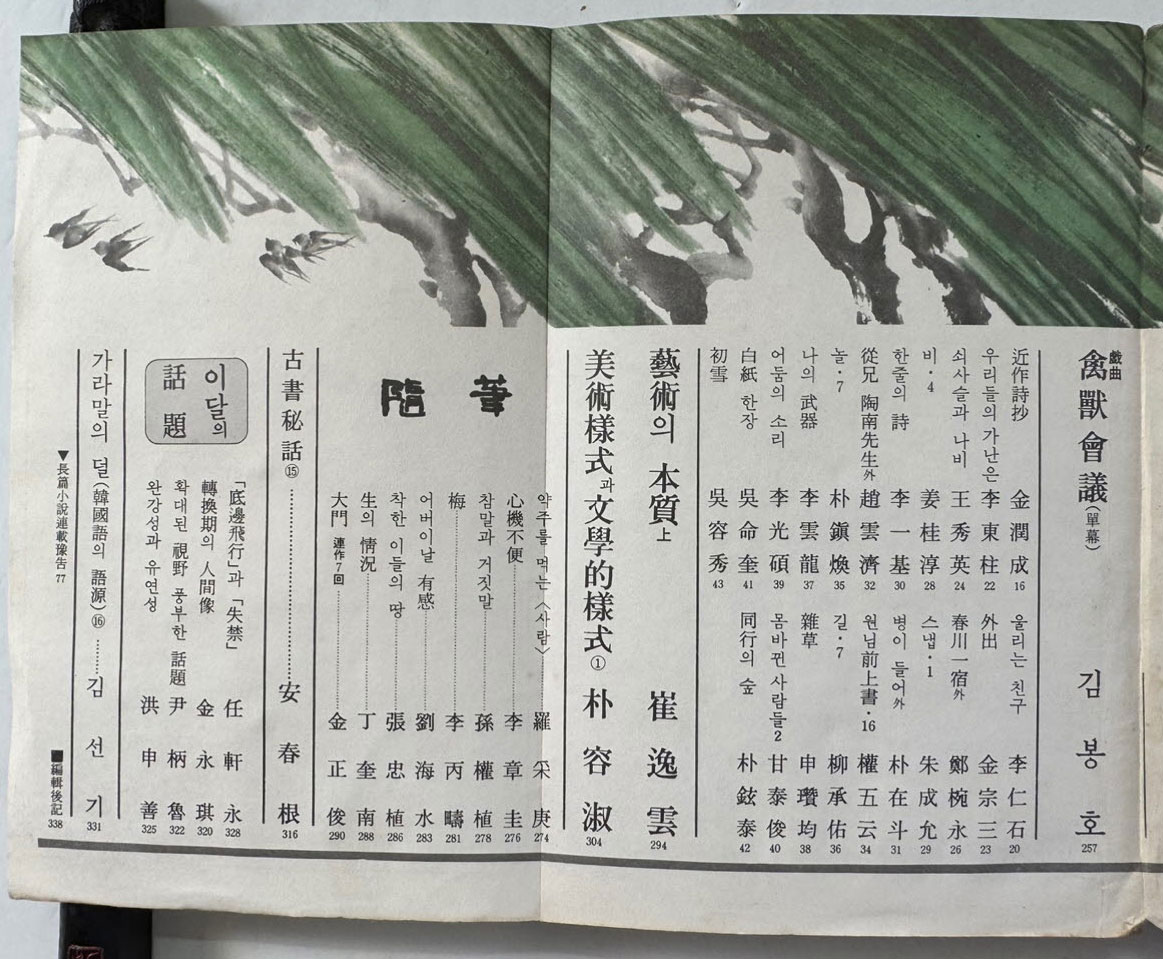 戲曲
禽獸會議(單幕) 김봉호 257
近作詩抄 金潤成 16
우리들의 가난은 李東柱 22
쇠사슬과 나비 王秀英 24
비·4 姜桂淳 28
한줄의 詩 李一基 30
從兄 陶南先生外 趙雲濟 32
놀·7 朴鎭煥 35
나의 武器 李雲龍 37
어둠의 소리 李光碩 39
白紙 한장 吳命奎 41
初雪 吳容秀 43
울리는 친구 李仁石 20
外出 金宗三 23
春川一宿外 鄭椀永 26
스냅·1 朱成允 29
병이 들어外 朴在斗 31
원님前上書·16 權五云 34
길·7 柳承佑 36
雜草 申瓚均 38
몸바뀐 사람들2 甘泰俊 40
同行의 숲 朴鉉泰 42
藝術의 本質 上 崔逸雲 294
美術樣式과 文學的樣式① 朴容淑 304
隨筆
약주를 먹는 〈사람〉 羅采庚 274
心機不便 李章圭 276
참말과 거짓말 孫權植 278
梅 李丙疇 281
어버이날 有感 劉海水 283
착한 이들의 땅 張忠植 286
生의 情況 丁奎南 288
大門 連作7回 金正俊 290
古書秘話⑮ 安春根 316
이달의 話題
「底邊飛行」과 「失禁」 任軒永 328
轉換期의 人間像 金永琪 320
확대된 視野 풍부한 話題 尹柄魯 322
완강성과 유연성 洪申善 325
가라말의 덜(韓國語의 語源)⑯ 김선기 331
▼長篇小說連載豫告 77
■編輯後記 338